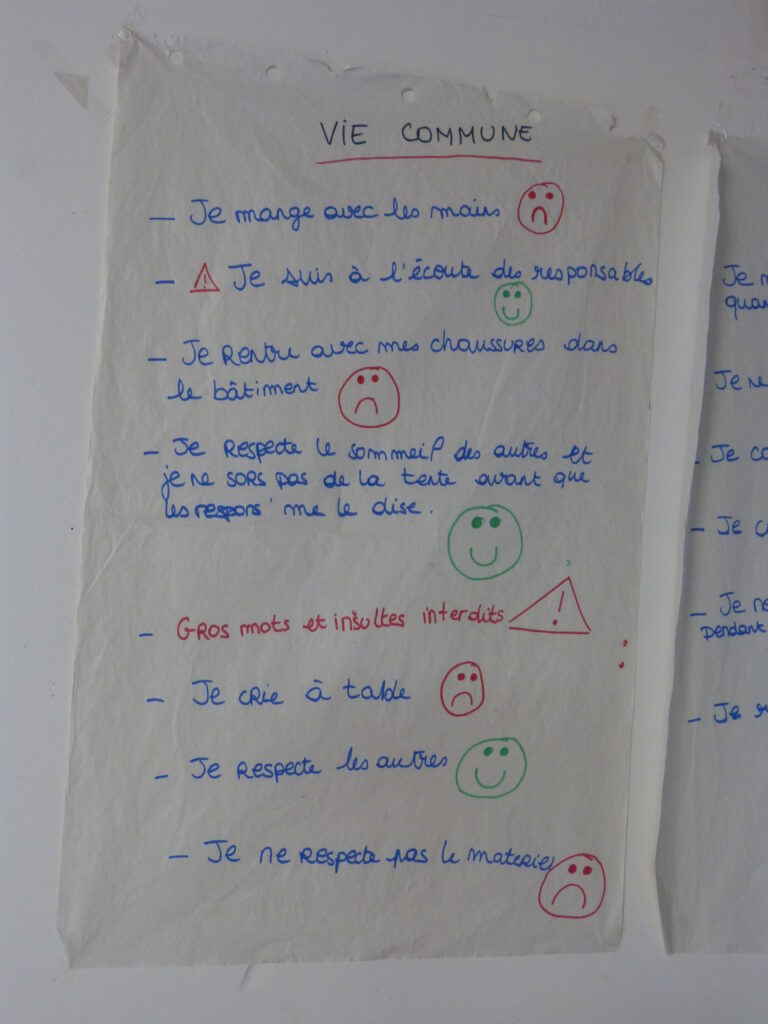 VIE COMMUNE
– Je mange avec les mains
– Je suis à l'écoute des responsables
– Je rentre avec mes chaussures dans
le bâtiment
– Je respecte le sommeil des autres et
je ne sors pas de la tente avant que
les respons' me le dise.
– Gros mots et insultes interdits
– Je crie à table
– Je respecte les autres
– Je ne respecte pas le materiel
Je
quan
Je ne
– Je co
– Je
– Je ne
pendant
– Je